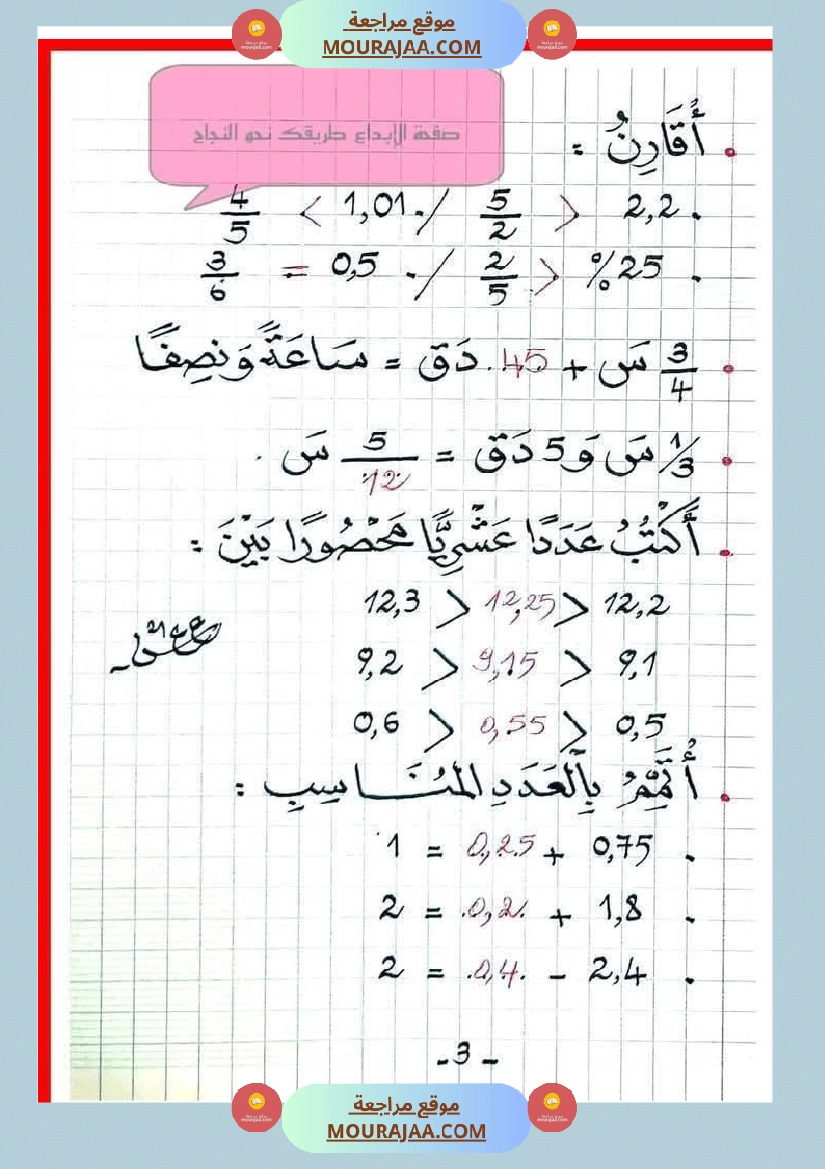 موقع مراجعة
MOURAJAA.COM
صفحة الإبداع طريقك نحو النجاح
. أُقَارِنُ :
. 2,2 > 5/2 ./ 1,01 > 4/5
. 25% > 2/5 ./ 0,5 = 3/6
. 3/4 سَ + 45. دَق = سَاعَةً وَنِصِفًا
. 1/3 سَ وَ 5 دَق = 5/12 سَ .
. أَكْتُبُ عَدَدًا عَشْرِيًّا مَحْصُورًا بَيْنَ :
12,2 > 12,25 > 12,3
9,1 > 9,15 > 9,2
0,5 > 0,55 > 0,6
. أُتَمِّمُ بِالْعَدَدِ الْمُنَاسِبِ :
. 0,75 + 0,25 = 1
. 1,8 + 0,2 = 2
. 2,4 - 0,4 = 2
- 3 -
موقع مراجعة
MOURAJAA.COM